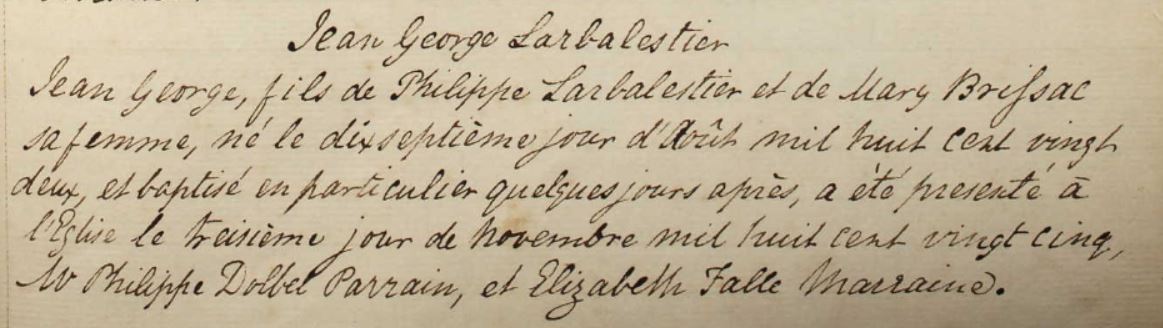 Jean George Larbalestier
Jean George, fils de Philippe Larbalestier et de Mary Brissac
sa femme, né le dixseptième jour d'Août mil huit cent vingt
deux, et baptisé en particulier quelques jours après, a été presenté à
l'Eglise le treisième jour de Novembre mil huit cent vingt cinq,
Mr Philippe Dolbel Parrain, et Elizabeth Falle Marraine.